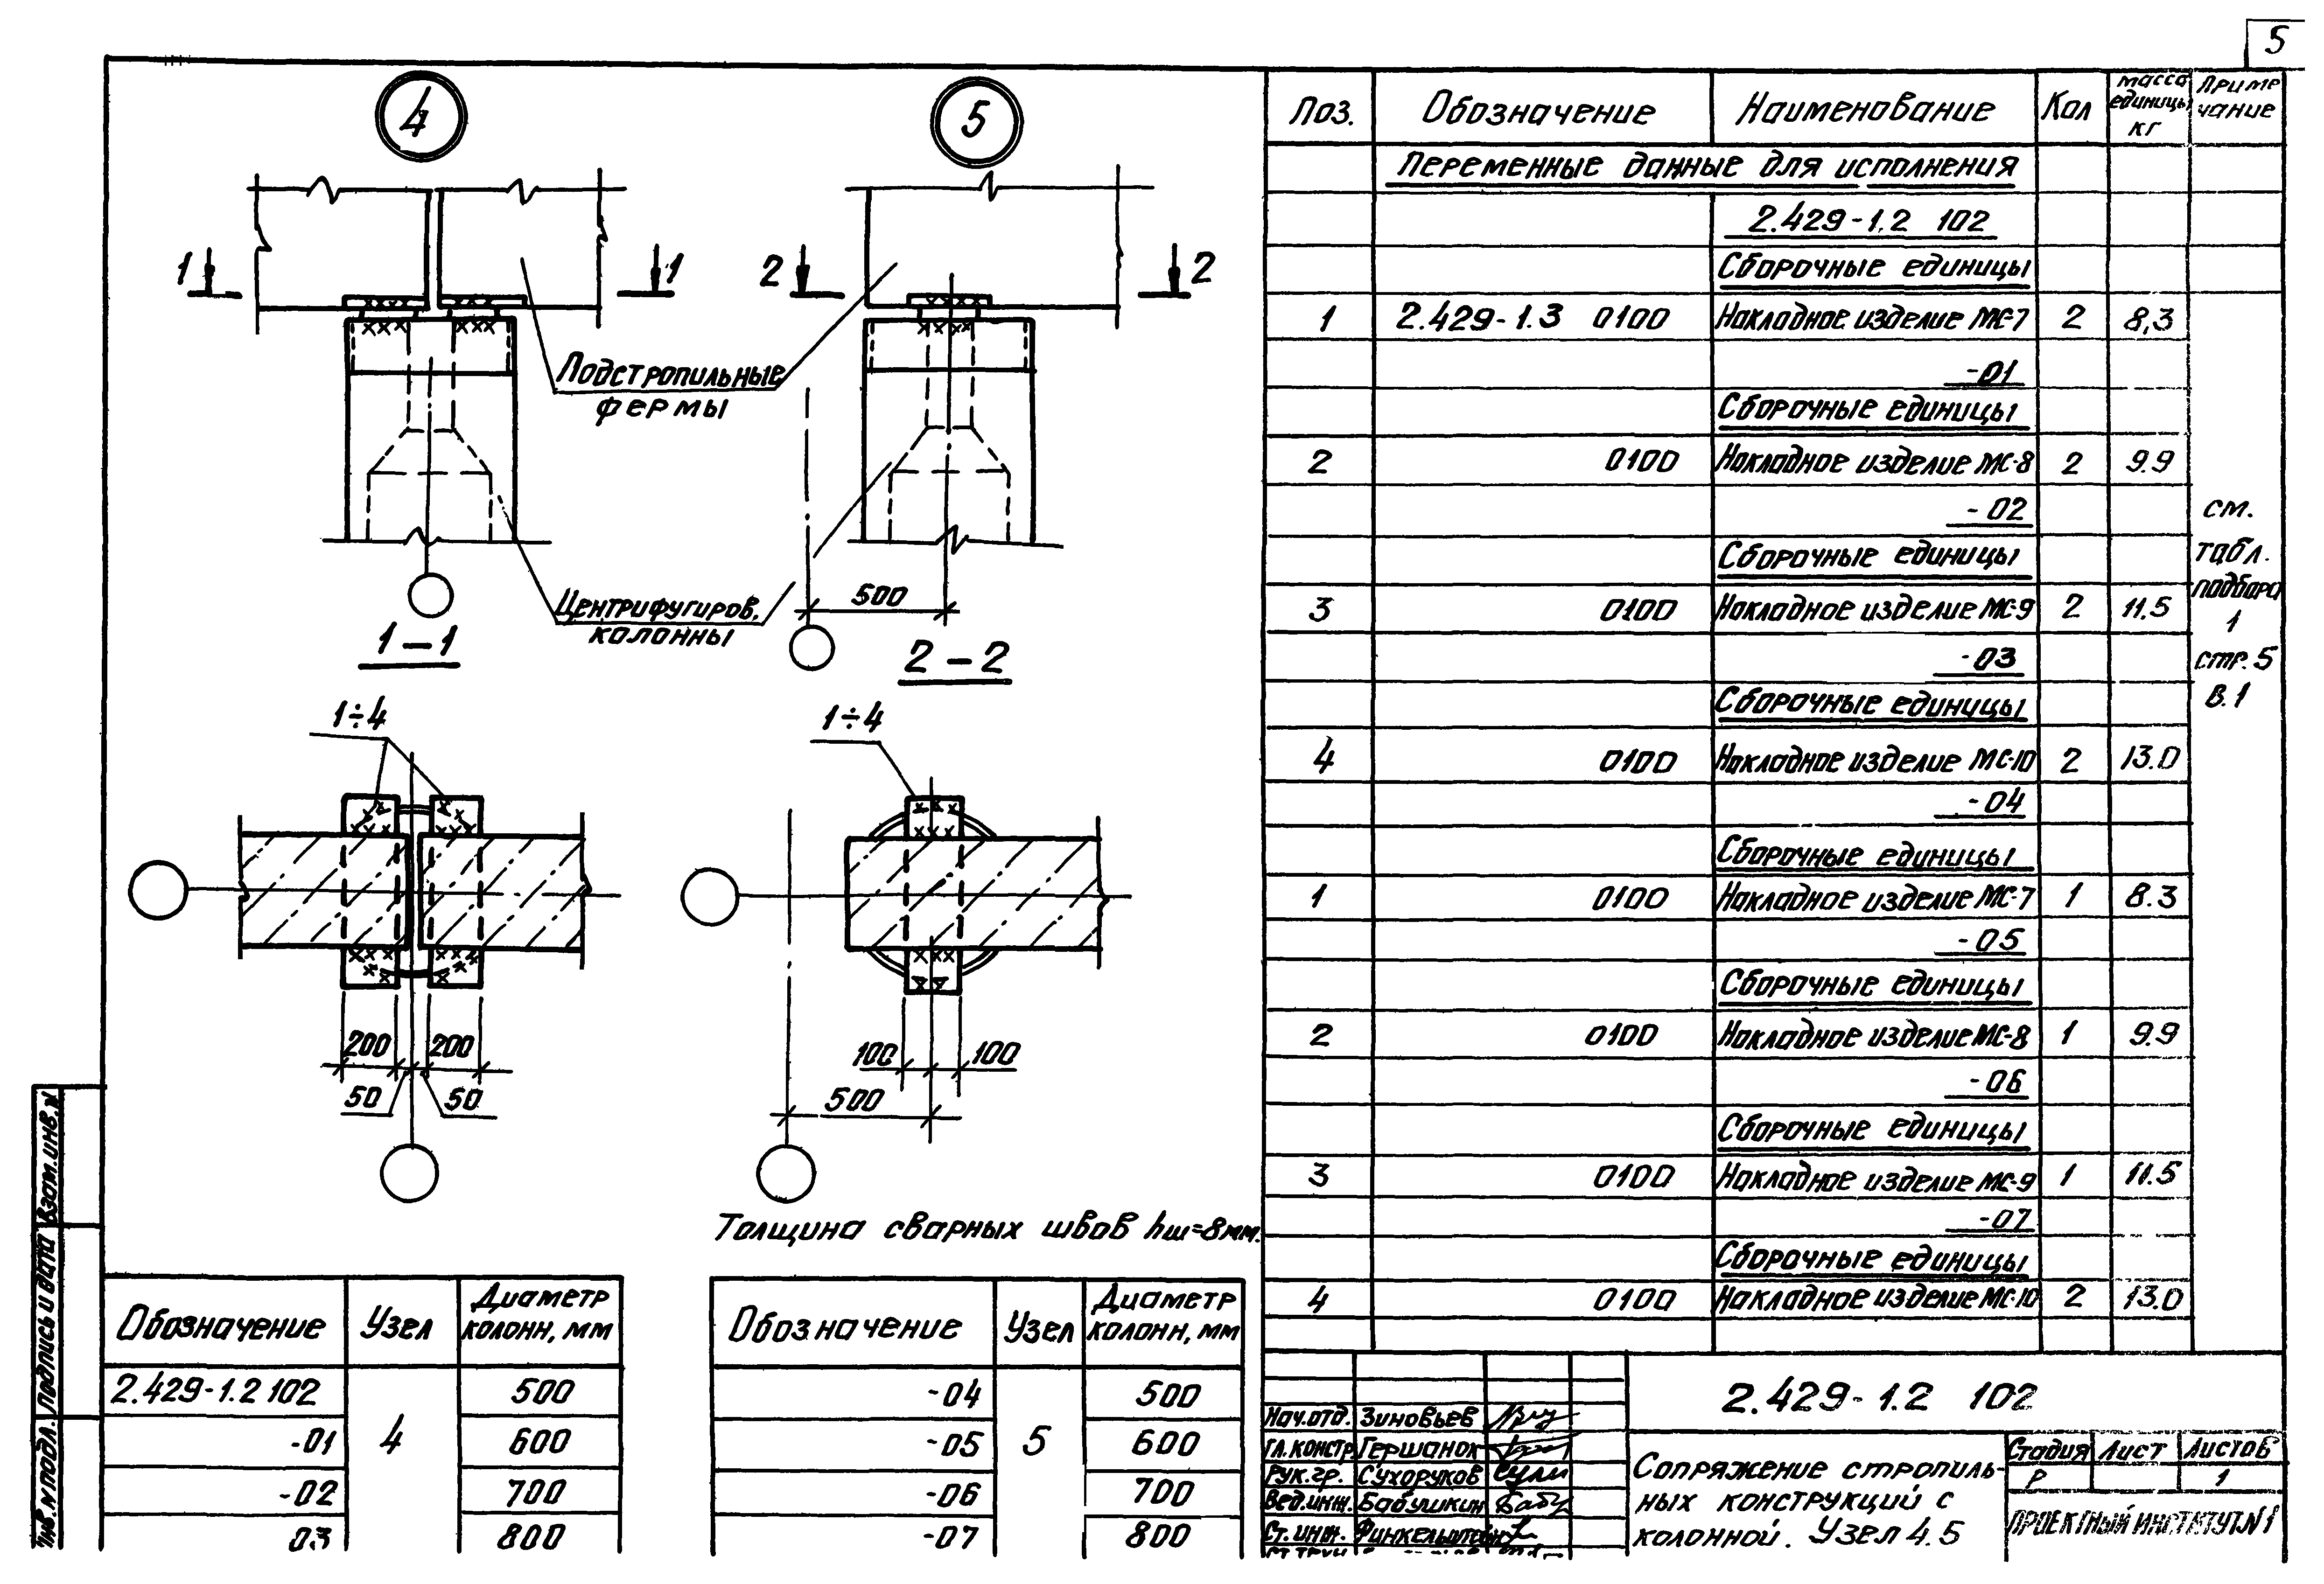 5
4
5
1
1
2
2
Подстропильные
фермы
500
Центрифугиров.
колонны
1-1
2-2
1÷4
1÷4
200
200
50
50
100
100
500
Толщина сварных швов hш=8мм.
Обозначение Узел Диаметр колонн, мм
2.429-1.2 102 4 500
-01 600
-02 700
03 800
Обозначение Узел Диаметр колонн, мм
-04 5 500
-05 600
-06 700
-07 800
Поз. Обозначение Наименование Кол масса единицы, кг Примечание
Переменные данные для исполнения
2.429-1.2 102
Сборочные единицы
1 2.429-1.3 0100 Накладное изделие МС-7 2 8,3
-01
Сборочные единицы
2 0100 Накладное изделие МС-8 2 9.9
-02
Сборочные единицы
3 0100 Накладное изделие МС-9 2 11.5
-03
Сборочные единицы
4 0100 Накладное изделие МС-10 2 13.0
-04
Сборочные единицы
1 0100 Накладное изделие МС-7 1 8.3
-05
Сборочные единицы
2 0100 Накладное изделие МС-8 1 9.9
-06
Сборочные единицы
3 0100 Накладное изделие МС-9 1 11.5
-07
Сборочные единицы
4 0100 Накладное изделие МС-10 2 13.0
см.
табл.
подбора
1
стр. 5
в. 1
2.429-1.2 102
Нач.отд. Зиновьев
Гл.констр. Гершанок
Рук.гр. Сухоруков
Вед.инж. Бабушкин
Ст.инж. Финкельштейн
Сопряжение стропиль-
ных конструкций с
колонной. Узел 4.5
Стадия Лист Листов
Р 1
ПРОЕКТНЫЙ ИНСТИТУТ N1
Инв.N подл. Подпись и дата Взам.инв.N